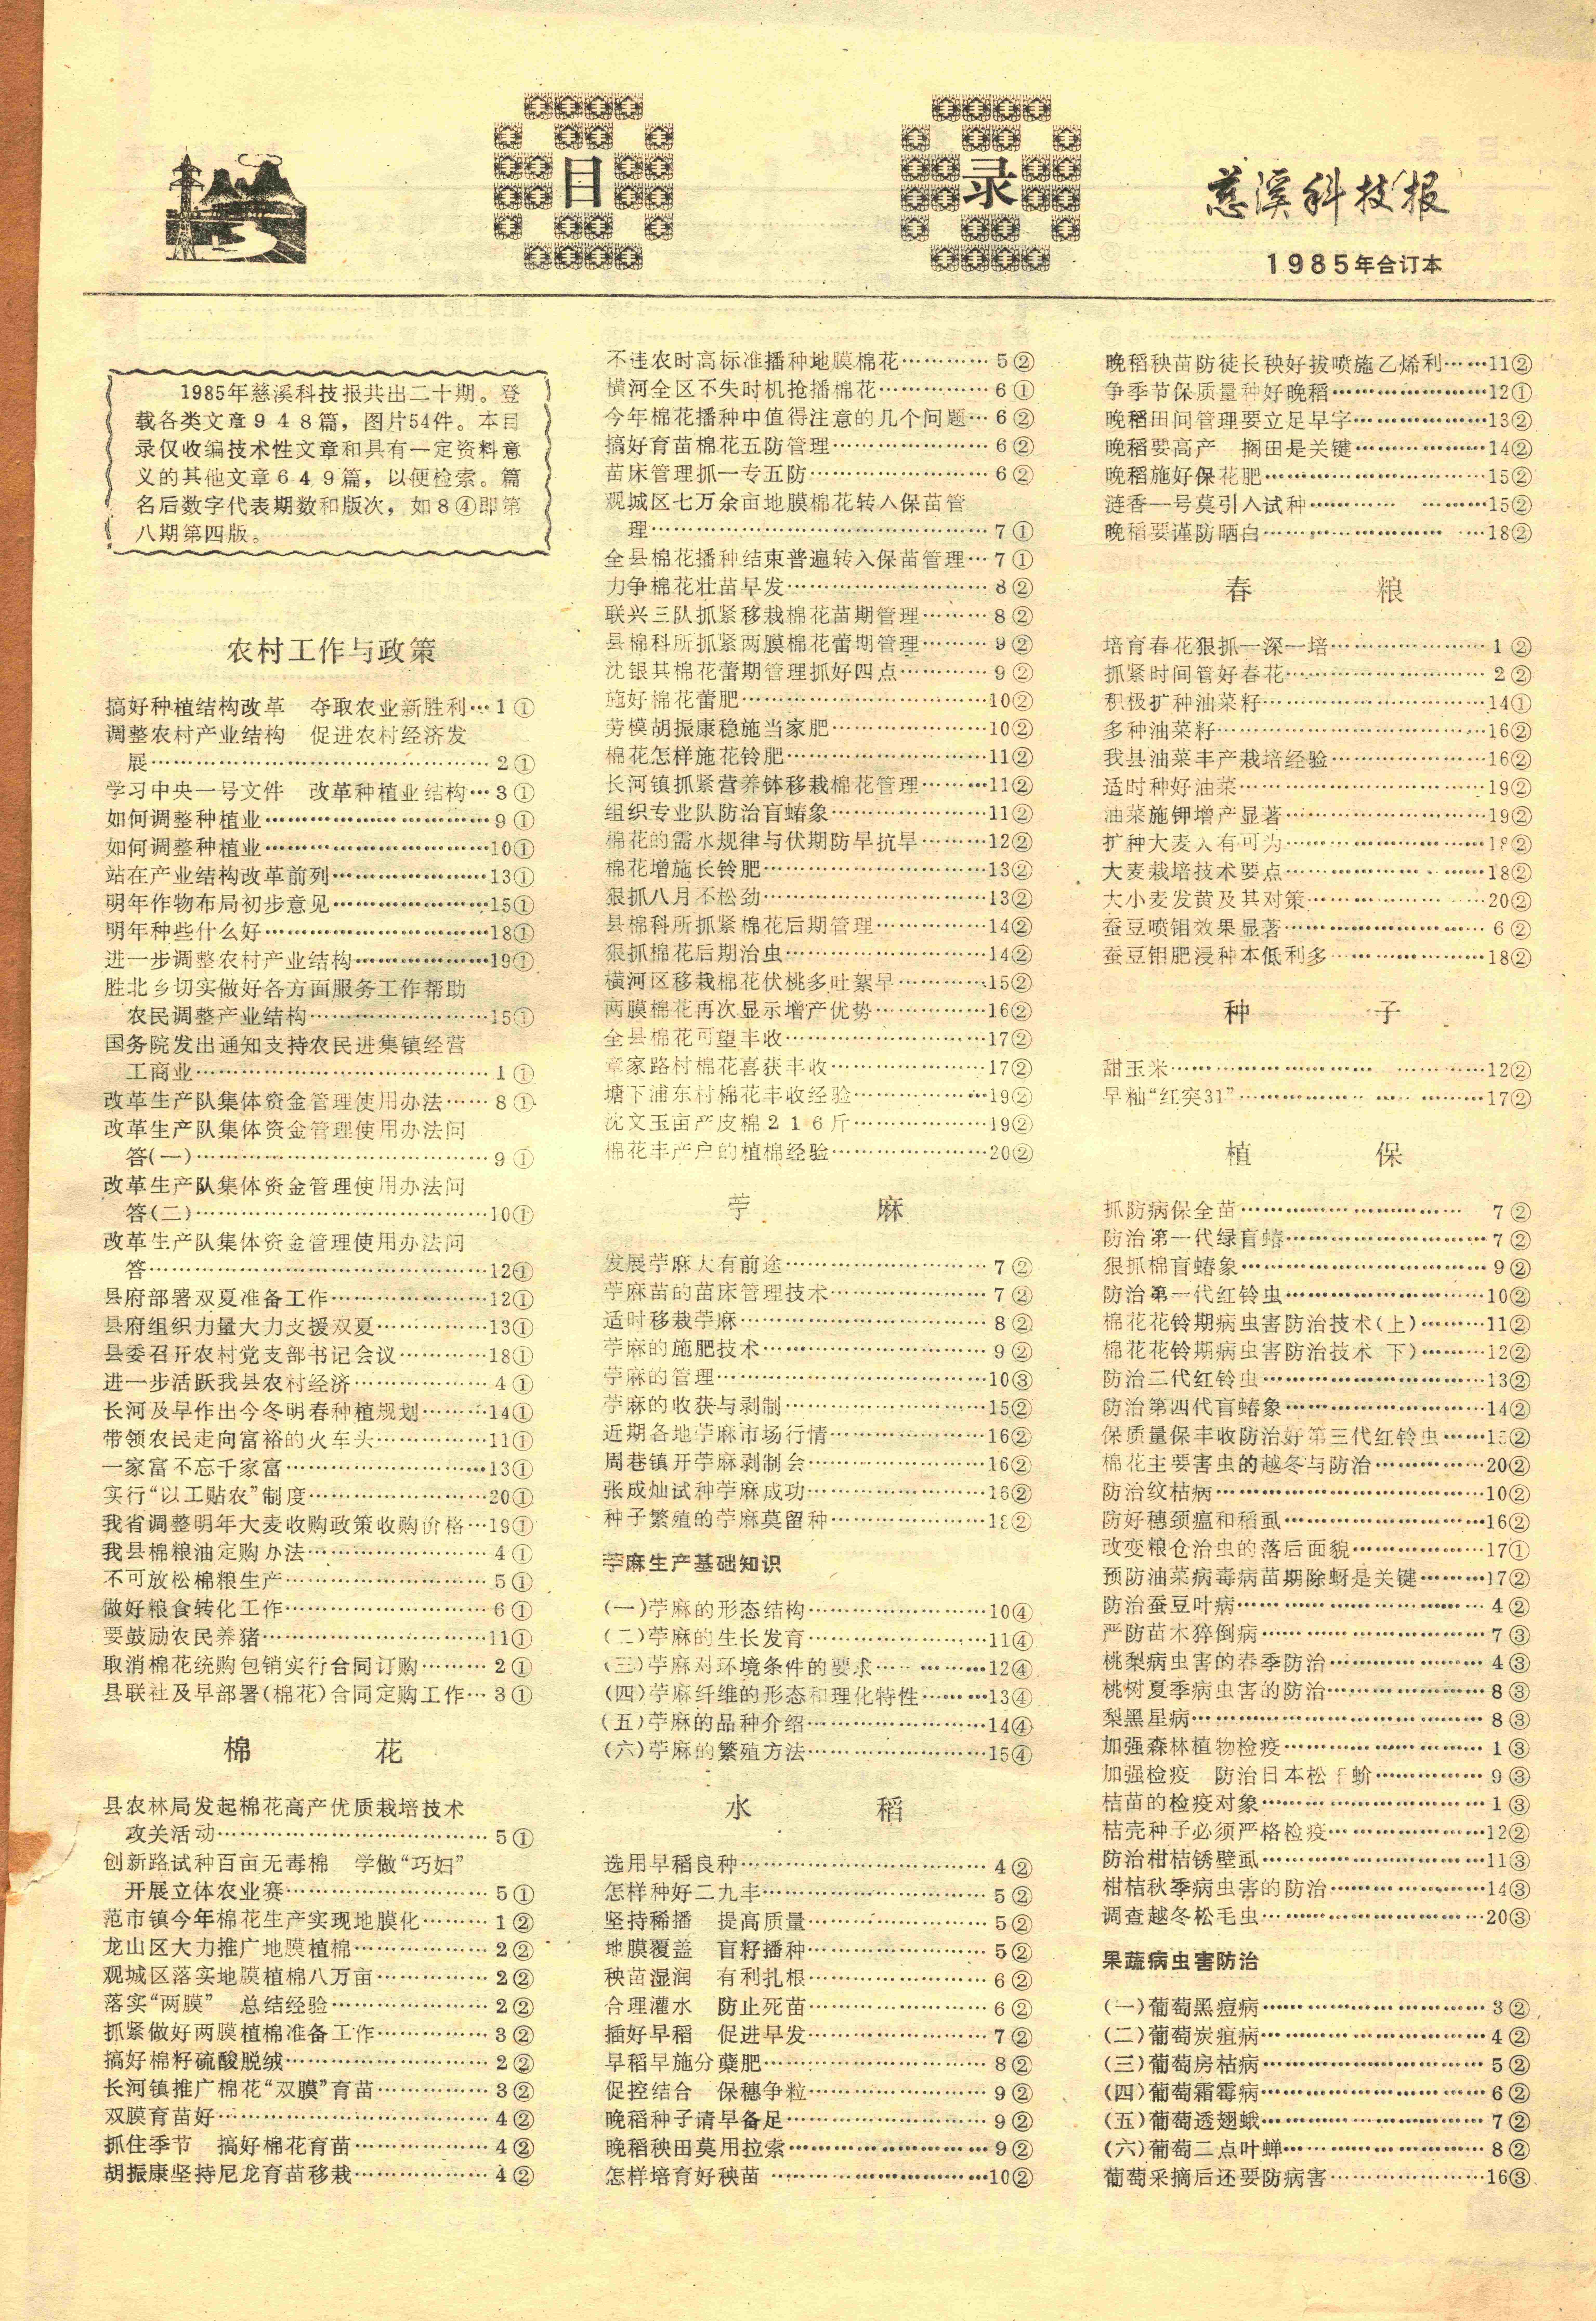 目录
慈溪科技报
1985年合订本
1985年慈溪科技报共出二十期。登
载各类文章948篇，图片54件。本目
录仅收编技术性文章和具有一定资料意
义的其他文章649篇，以便检索。篇
名后数字代表期数和版次，如8④即第
八期第四版。
农村工作与政策
搞好种植结构改革　夺取农业新胜利…1①
调整农村产业结构　促进农村经济发
展……2①
学习中央一号文件　改革种植业结构…3①
如何调整种植业……9①
如何调整种植业……10①
站在产业结构改革前列……13①
明年作物布局初步意见……15①
明年种些什么好……18①
进一步调整农村产业结构……19①
胜北乡切实做好各方面服务工作帮助
农民调整产业结构……15①
国务院发出通知支持农民进集镇经营
工商业……1①
改革生产队集体资金管理使用办法……8①
改革生产队集体资金管理使用办法问
答(一)……9①
改革生产队集体资金管理使用办法问
答(二)……10①
改革生产队集体资金管理使用办法问
答……12①
县府部署双夏准备工作……12①
县府组织力量大力支援双夏……13①
县委召开农村党支部书记会议……18①
进一步活跃我县农村经济……4①
长河及早作出今冬明春种植规划……14①
带领农民走向富裕的火车头……11①
一家富不忘千家富……13①
实行“以工贴农”制度……20①
我省调整明年大麦收购政策收购价格…19①
我县棉粮油定购办法……4①
不可放松棉粮生产……5①
做好粮食转化工作……6①
要鼓励农民养猪……11①
取消棉花统购包销实行合同订购……2①
县联社及早部署(棉花)合同定购工作…3①
棉花
县农林局发起棉花高产优质栽培技术
攻关活动……5①
创新路试种百亩无毒棉　学做“巧妇”
开展立体农业赛……5①
范市镇今年棉花生产实现地膜化……1②
龙山区大力推广地膜植棉……2②
观城区落实地膜植棉八万亩……2②
落实“两膜”　总结经验……2②
抓紧做好两膜植棉准备工作……3②
搞好棉籽硫酸脱绒……2②
长河镇推广棉花“双膜”育苗……3②
双膜育苗好……4②
抓住季节　搞好棉花育苗……4②
胡振康坚持尼龙育苗移栽……4②
不违农时高标准播种地膜棉花……5②
横河全区不失时机抢播棉花……6①
今年棉花播种中值得注意的几个问题…6②
搞好育苗棉花五防管理……6②
苗床管理抓一专五防……6②
观城区七万余亩地膜棉花转入保苗管
理……7①
全县棉花播种结束普遍转入保苗管理…7①
力争棉花壮苗早发……8②
联兴三队抓紧移栽棉花苗期管理……8②
县棉科所抓紧两膜棉花蕾期管理……9②
沈银其棉花蕾期管理抓好四点……9②
施好棉花蕾肥……10②
劳模胡振康稳施当家肥……10②
棉花怎样施花铃肥……11②
长河镇抓紧营养钵移栽棉花管理……11②
组织专业队防治盲蝽象……11②
棉花的需水规律与伏期防旱抗旱……12②
棉花增施长铃肥……13②
狠抓八月不松劲……13②
县棉科所抓紧棉花后期管理……14②
狠抓棉花后期治虫……14②
横河区移栽棉花伏桃多吐絮早……15②
两膜棉花再次显示增产优势……16②
全县棉花可望丰收……17②
章家路村棉花喜获丰收……17②
塘下浦东村棉花丰收经验……19②
沈文玉亩产皮棉216斤……19②
棉花丰产户的植棉经验……20②
苎麻
发展苎麻大有前途……7②
苎麻苗的苗床管理技术……7②
适时移栽苎麻……8②
苎麻的施肥技术……9②
苎麻的管理……10③
苎麻的收获与剥制……15②
近期各地苎麻市场行情……16②
周巷镇开苎麻剥制会……16②
张成灿试种苎麻成功……16②
种子繁殖的苎麻莫留种……18②
苎麻生产基础知识
(一)苎麻的形态结构……10④
(二)苎麻的生长发育……11④
(三)苎麻对环境条件的要求……12④
(四)苎麻纤维的形态和理化特性……13④
(五)苎麻的品种介绍……14④
(六)苎麻的繁殖方法……15④
水稻
选用早稻良种……4②
怎样种好二九丰……5②
坚持稀播　提高质量……5②
地膜覆盖　盲籽播种……5②
秧苗湿润　有利扎根……6②
合理灌水　防止死苗……6②
插好早稻　促进早发……7②
早稻早施分蘖肥……8②
促控结合　保穗争粒……9②
晚稻种子请早备足……9②
晚稻秧田莫用拉索……9②
怎样培育好秧苗……10②
晚稻秧苗防徒长秧好拔喷施乙烯利……11②
争季节保质量种好晚稻……12①
晚稻田间管理要立足早字……13②
晚稻要高产　搁田是关键……14②
晚稻施好保花肥……15②
涟香一号莫引入试种……15②
晚稻要谨防晒白……18②
春粮
培育春花狠抓一深一培……1②
抓紧时间管好春花……2②
积极扩种油菜籽……14①
多种油菜籽……16②
我县油菜丰产栽培经验……16②
适时种好油菜……19②
油菜施钾增产显著……19②
扩种大麦大有可为……18②
大麦栽培技术要点……18②
大小麦发黄及其对策……20②
蚕豆喷钼效果显著……6②
蚕豆钼肥浸种本低利多……18②
种子
甜玉米……12②
早籼“红突31”……17②
植保
抓防病保全苗……7②
防治第一代绿盲蝽……7②
狠抓棉盲蝽象……9②
防治第一代红铃虫……10②
棉花花铃期病虫害防治技术(上)……11②
棉花花铃期病虫害防治技术 下)……12②
防治二代红铃虫……13②
防治第四代盲蝽象……14②
保质量保丰收防治好第三代红铃虫……15②
棉花主要害虫的越冬与防治……20②
防治纹枯病……10②
防好穗颈瘟和稻虱……16②
改变粮仓治虫的落后面貌……17①
预防油菜病毒病苗期除蚜是关键……17②
防治蚕豆叶病……4②
严防苗木猝倒病……7③
桃梨病虫害的春季防治……4③
桃树夏季病虫害的防治……8③
梨黑星病……8③
加强森林植物检疫……1③
加强检疫　防治日本松干蚧……9③
桔苗的检疫对象……1③
桔壳种子必须严格检疫……12②
防治柑桔锈壁虱……11③
柑桔秋季病虫害的防治……14③
调查越冬松毛虫……20③
果蔬病虫害防治
(一)葡萄黑痘病……3②
(二)葡萄炭疽病……4②
(三)葡萄房枯病……5②
(四)葡萄霜霉病……6②
(五)葡萄透翅蛾……7②
(六)葡萄二点叶蝉……8②
葡萄采摘后还要防病害……16③